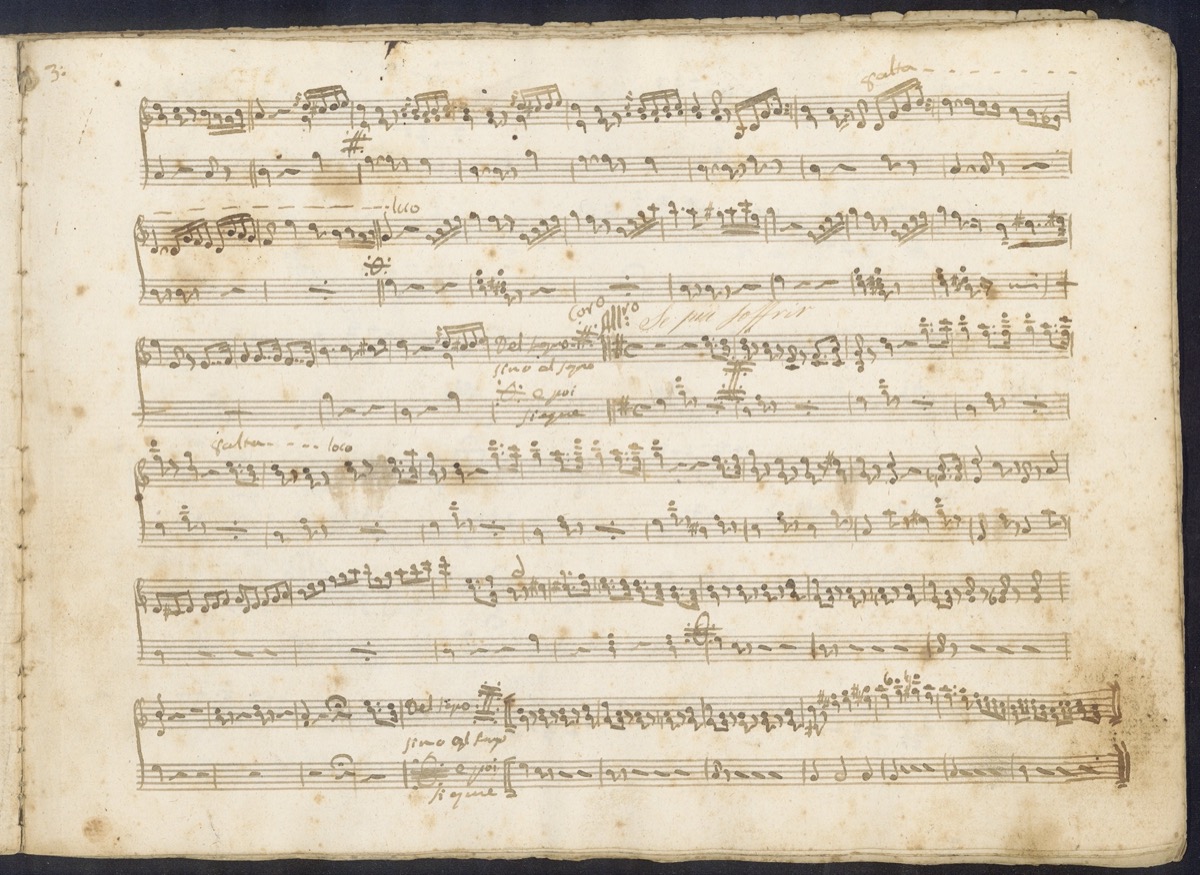 3:
8alta
loco
Coro All.ro Se puo soffrir
Del segno
sino al segno
e poi
siegue
8alta loco
Del segno
sino al segno
e poi
siegue